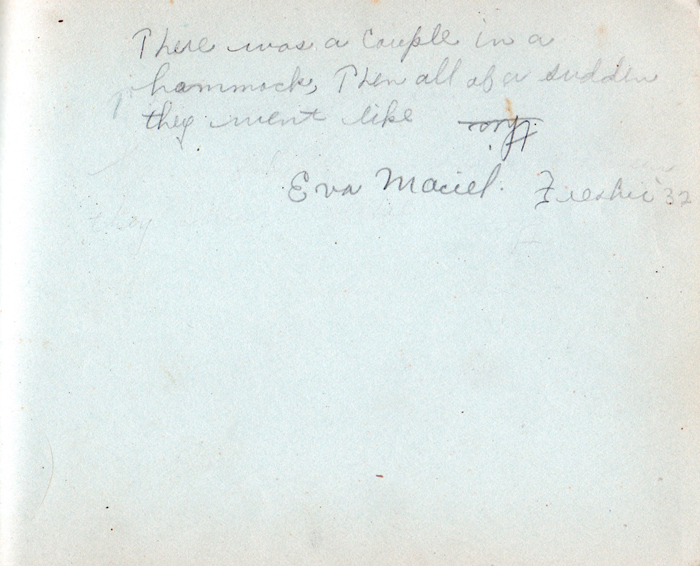 There was a couple in a
hammock, Then all of a sudden
they went like
Eva Maciel. Freshie '32
they